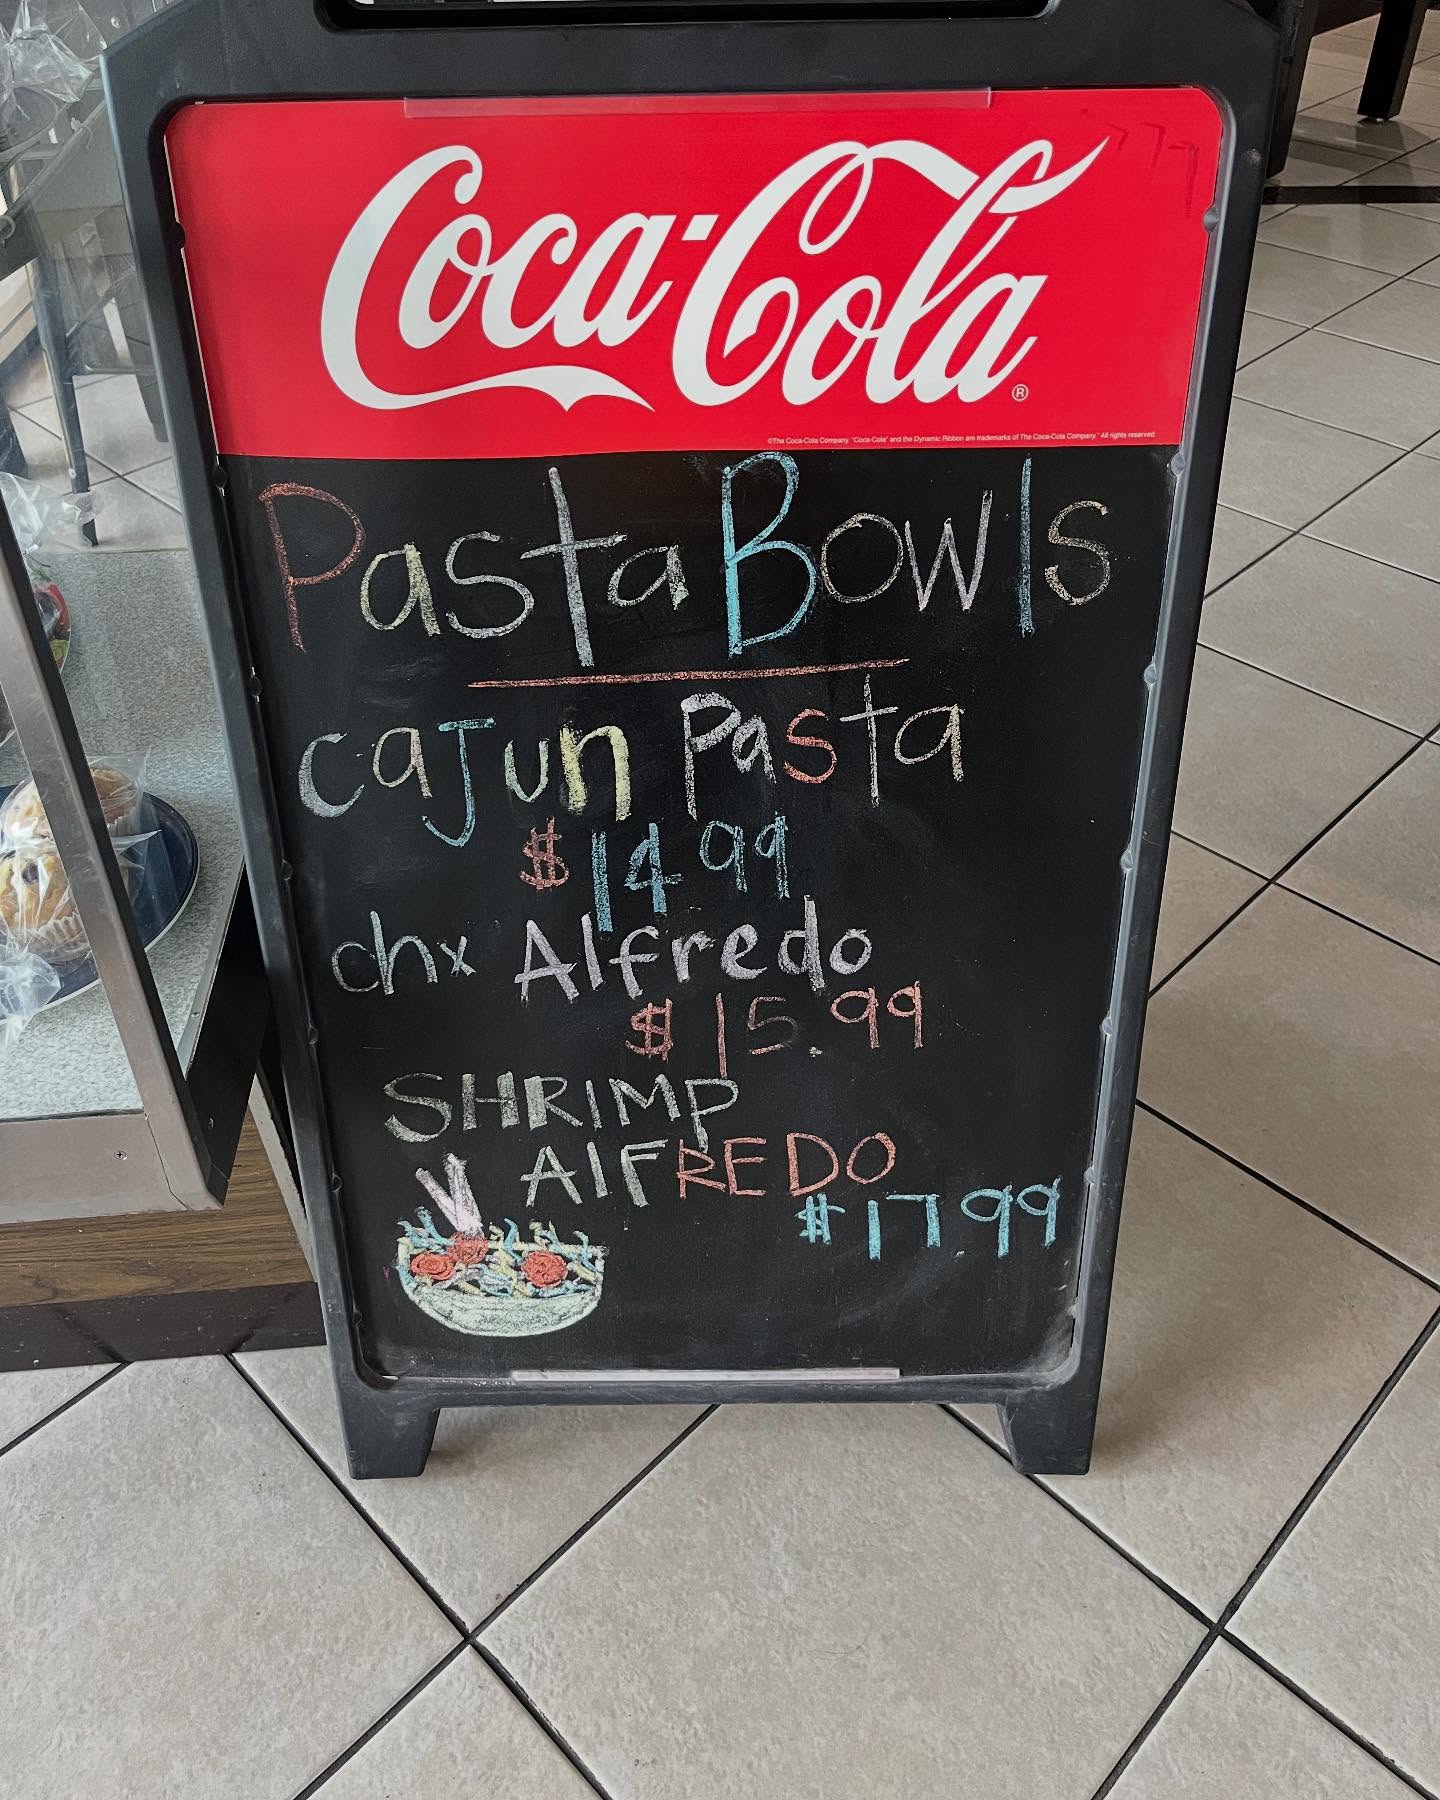 Coca-Cola
®
©The Coca-Cola Company. "Coca-Cola" and the Dynamic Ribbon are trademarks of The Coca-Cola Company. All rights reserved.
Pasta Bowls
cajun Pasta
$14.99
chx Alfredo
$15.99
SHRIMP
AlFREDO
$17.99